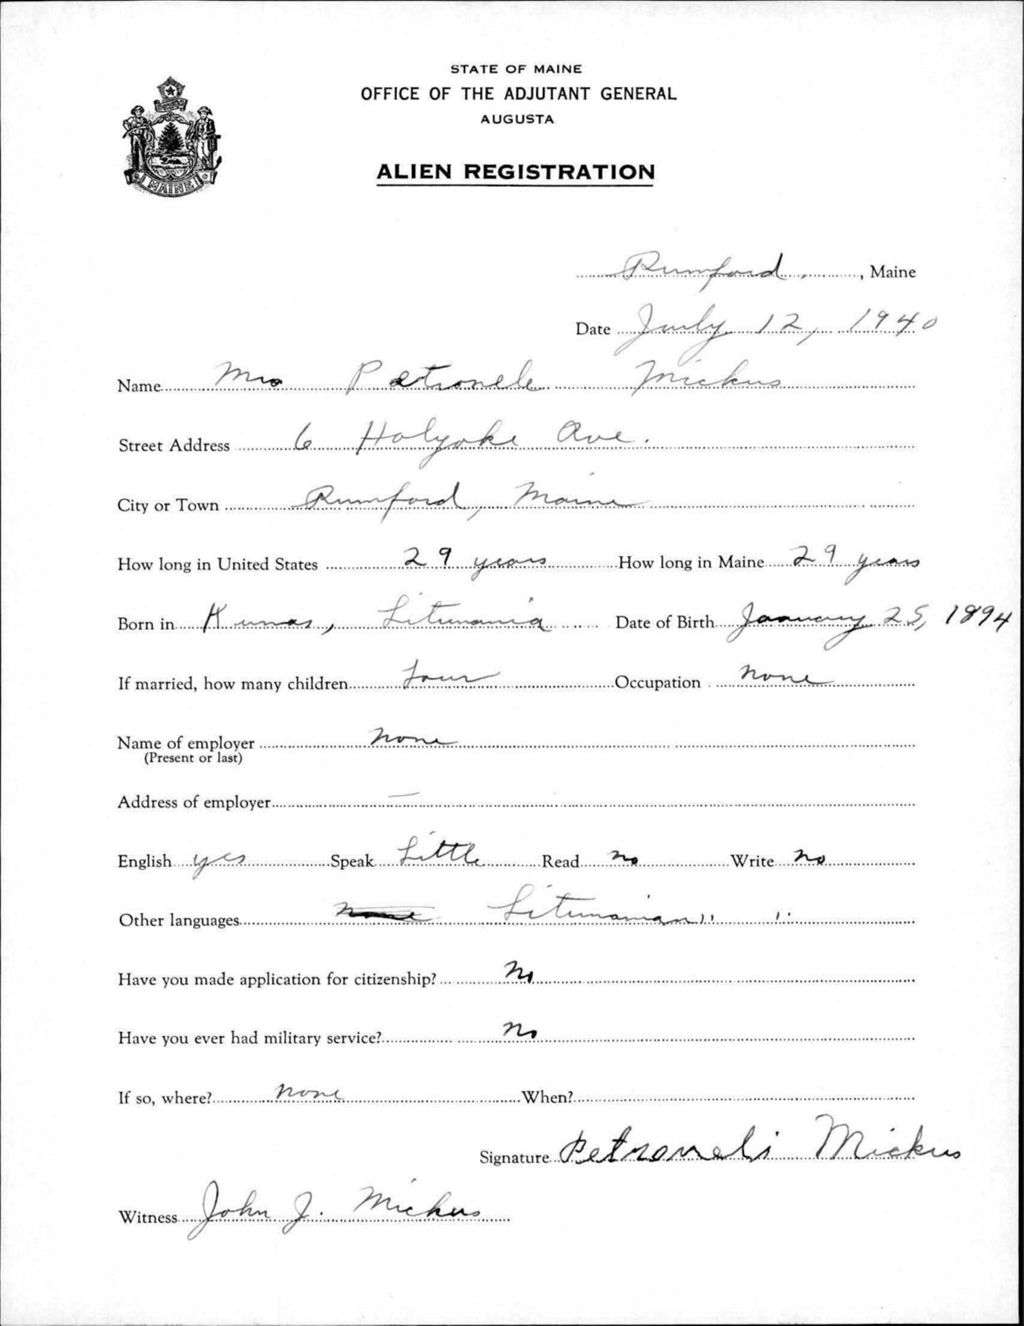 STATE OF MAINE
OFFICE OF THE ADJUTANT GENERAL
AUGUSTA
ALIEN REGISTRATION
MAINE
Rumford, Maine
Date July 12, 1940
Name Mrs Petronele Mickus
Street Address 6 Holyoke Ave.
City or Town Rumford, Maine
How long in United States 29 years How long in Maine 29 years
Born in Kunas, Lituania Date of Birth January 25, 1894
If married, how many children four Occupation none
Name of employer none
(Present or last)
Address of employer —
English yes Speak Little Read no Write no
Other languages none Lituanian
Have you made application for citizenship? No
Have you ever had military service? no
If so, where? none When?
Signature Petroneli Mickus
Witness John J. Mickus